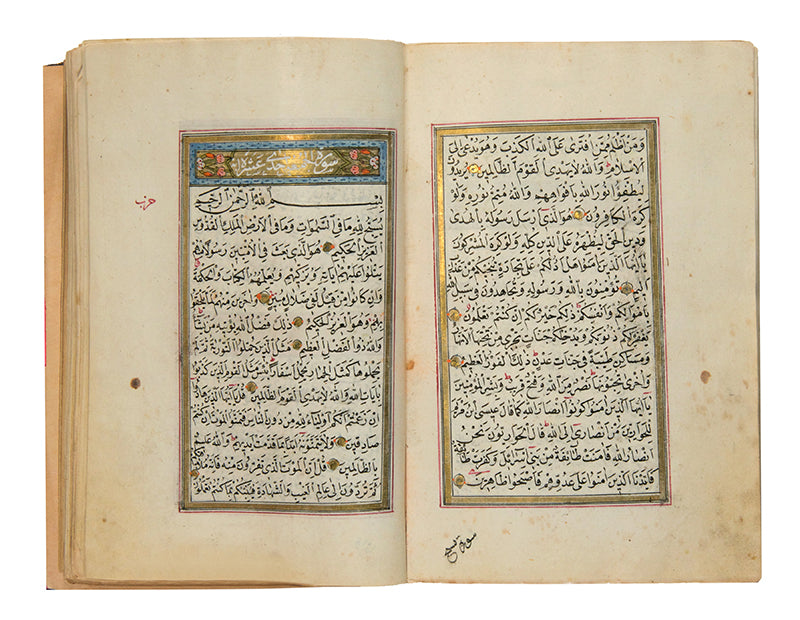 وَمَنْ اَظْلَمُ مِمَّنِ افْتَرٰى عَلَى اللهِ الْكَذِبَ وَهُوَ يُدْعٰى اِلَى
الْاِسْلَامِ وَاللهُ لَا يَهْدِى الْقَوْمَ الظَّالِمِينَ يُرِيدُونَ
لِيُطْفِؤُا نُورَ اللهِ بِاَفْوَاهِهِمْ وَاللهُ مُتِمُّ نُورِهِ وَلَوْ
كَرِهَ الْكَافِرُونَ هُوَ الَّذِى اَرْسَلَ رَسُولَهُ بِالْهُدٰى
وَدِينِ الْحَقِّ لِيُظْهِرَهُ عَلَى الدِّينِ كُلِّهِ وَلَوْ كَرِهَ الْمُشْرِكُونَ
يَا اَيُّهَا الَّذِينَ اٰمَنُوا هَلْ اَدُلُّكُمْ عَلٰى تِجَارَةٍ تُنْجِيكُمْ مِنْ عَذَابٍ
اَلِيمٍ تُؤْمِنُونَ بِاللهِ وَرَسُولِهِ وَتُجَاهِدُونَ فِى سَبِيلِ اللهِ
بِاَمْوَالِكُمْ وَاَنْفُسِكُمْ ذٰلِكُمْ خَيْرٌ لَكُمْ اِنْ كُنْتُمْ تَعْلَمُونَ
يَغْفِرْ لَكُمْ ذُنُوبَكُمْ وَيُدْخِلْكُمْ جَنَّاتٍ تَجْرِى مِنْ تَحْتِهَا الْاَنْهَارُ
وَمَسَاكِنَ طَيِّبَةً فِى جَنَّاتِ عَدْنٍ ذٰلِكَ الْفَوْزُ الْعَظِيمُ
وَاُخْرٰى تُحِبُّونَهَا نَصْرٌ مِنَ اللهِ وَفَتْحٌ قَرِيبٌ وَبَشِّرِ الْمُؤْمِنِينَ
يَا اَيُّهَا الَّذِينَ اٰمَنُوا كُونُوا اَنْصَارَ اللهِ كَمَا قَالَ عِيسَى ابْنُ مَرْيَمَ
لِلْحَوَارِيِّينَ مَنْ اَنْصَارِى اِلَى اللهِ قَالَ الْحَوَارِيُّونَ نَحْنُ
اَنْصَارُ اللهِ فَاٰمَنَتْ طَائِفَةٌ مِنْ بَنِى اِسْرَائِيلَ وَكَفَرَتْ طَائِفَةٌ
فَاَيَّدْنَا الَّذِينَ اٰمَنُوا عَلٰى عَدُوِّهِمْ فَاَصْبَحُوا ظَاهِرِينَ
سورة يسبح
سورة الجمعة احدى عشرة
حزب
بِسْمِ اللهِ الرَّحْمٰنِ الرَّحِيمِ
يُسَبِّحُ لِلهِ مَا فِى السَّمٰوَاتِ وَمَا فِى الْاَرْضِ الْمَلِكِ الْقُدُّوسِ
الْعَزِيزِ الْحَكِيمِ هُوَ الَّذِى بَعَثَ فِى الْاُمِّيِّينَ رَسُولًا مِنْهُمْ
يَتْلُوا عَلَيْهِمْ اٰيَاتِهِ وَيُزَكِّيهِمْ وَيُعَلِّمُهُمُ الْكِتَابَ وَالْحِكْمَةَ
وَاِنْ كَانُوا مِنْ قَبْلُ لَفِى ضَلَالٍ مُبِينٍ وَاٰخَرِينَ مِنْهُمْ لَمَّا يَلْحَقُوا
بِهِمْ وَهُوَ الْعَزِيزُ الْحَكِيمُ ذٰلِكَ فَضْلُ اللهِ يُؤْتِيهِ مَنْ يَشَاءُ
وَاللهُ ذُو الْفَضْلِ الْعَظِيمِ مَثَلُ الَّذِينَ حُمِّلُوا التَّوْرٰيةَ ثُمَّ
لَمْ يَحْمِلُوهَا كَمَثَلِ الْحِمَارِ يَحْمِلُ اَسْفَارًا بِئْسَ مَثَلُ الْقَوْمِ الَّذِينَ كَذَّبُوا
بِاٰيَاتِ اللهِ وَاللهُ لَا يَهْدِى الْقَوْمَ الظَّالِمِينَ قُلْ يَا اَيُّهَا الَّذِينَ هَادُوا
اِنْ زَعَمْتُمْ اَنَّكُمْ اَوْلِيَاءُ لِلهِ مِنْ دُونِ النَّاسِ فَتَمَنَّوُا الْمَوْتَ اِنْ كُنْتُمْ
صَادِقِينَ وَلَا يَتَمَنَّوْنَهُ اَبَدًا بِمَا قَدَّمَتْ اَيْدِيهِمْ وَاللهُ عَلِيمٌ
بِالظَّالِمِينَ قُلْ اِنَّ الْمَوْتَ الَّذِى تَفِرُّونَ مِنْهُ فَاِنَّهُ مُلَاقِيكُمْ
ثُمَّ تُرَدُّونَ اِلٰى عَالِمِ الْغَيْبِ وَالشَّهَادَةِ فَيُنَبِّئُكُمْ بِمَا كُنْتُمْ تَعْمَلُونَ